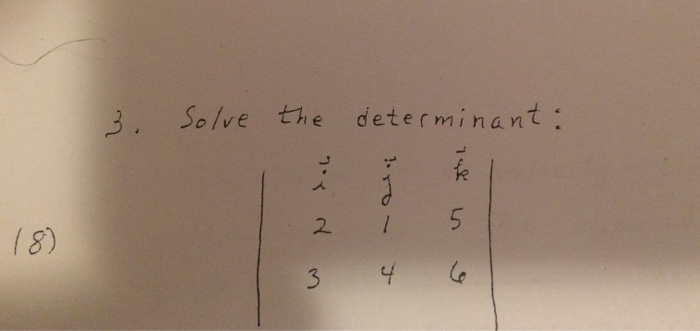 3. Solve the determinant:
i⃗ j⃗ k⃗
(8) 2 1 5
3 4 6